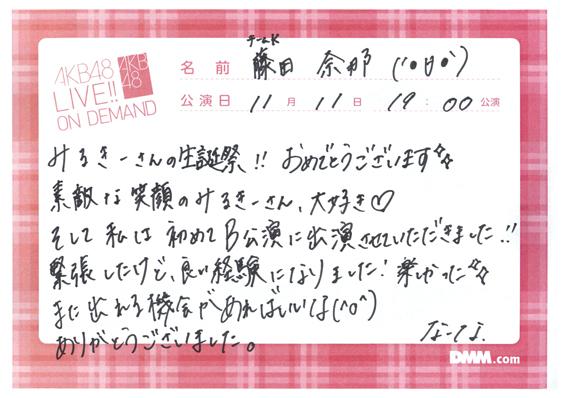 AKB48
LIVE!!
ON DEMAND
AKB
48
チームK
名前 藤田 奈那 (˙°ㅂ°˙)
公演日 11月 11日 19:00 公演
みるきーさんの生誕祭!! おめでとうございます☆☆
素敵な笑顔のみるきーさん、大好き♡
そして私は初めてB公演に出演させていただきました!!
緊張したけど、良い経験になりました! 楽しかった☆☆
また出れる機会があればいいな(^o^)
ありがとうございました。
なーな.
DMM.com